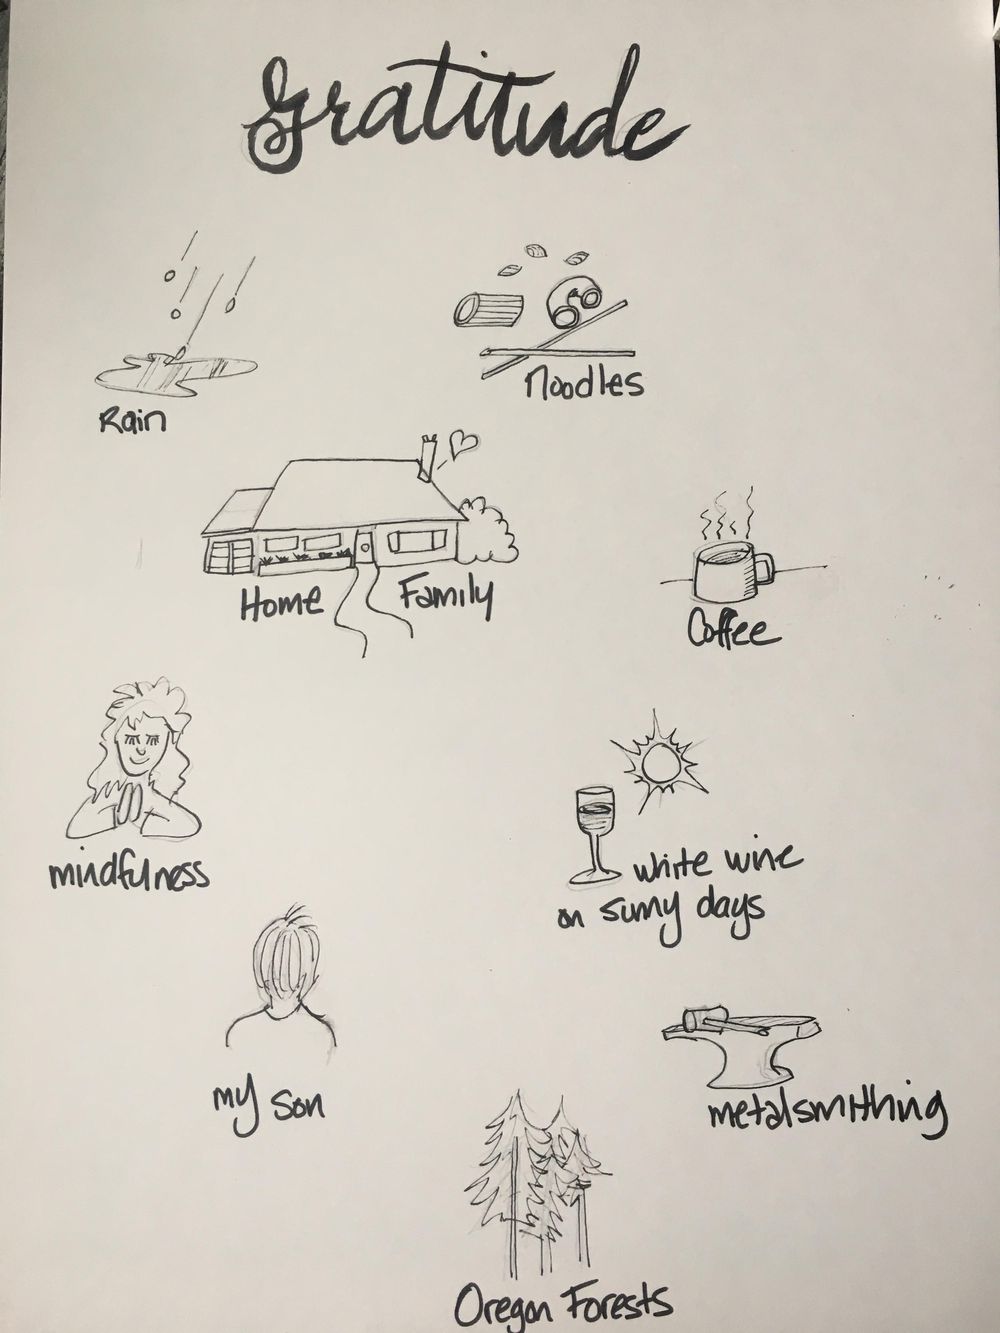 Gratitude
Rain
Noodles
Home Family
Coffee
mindfulness
white wine
on sunny days
my son
metalsmithing
Oregon Forests